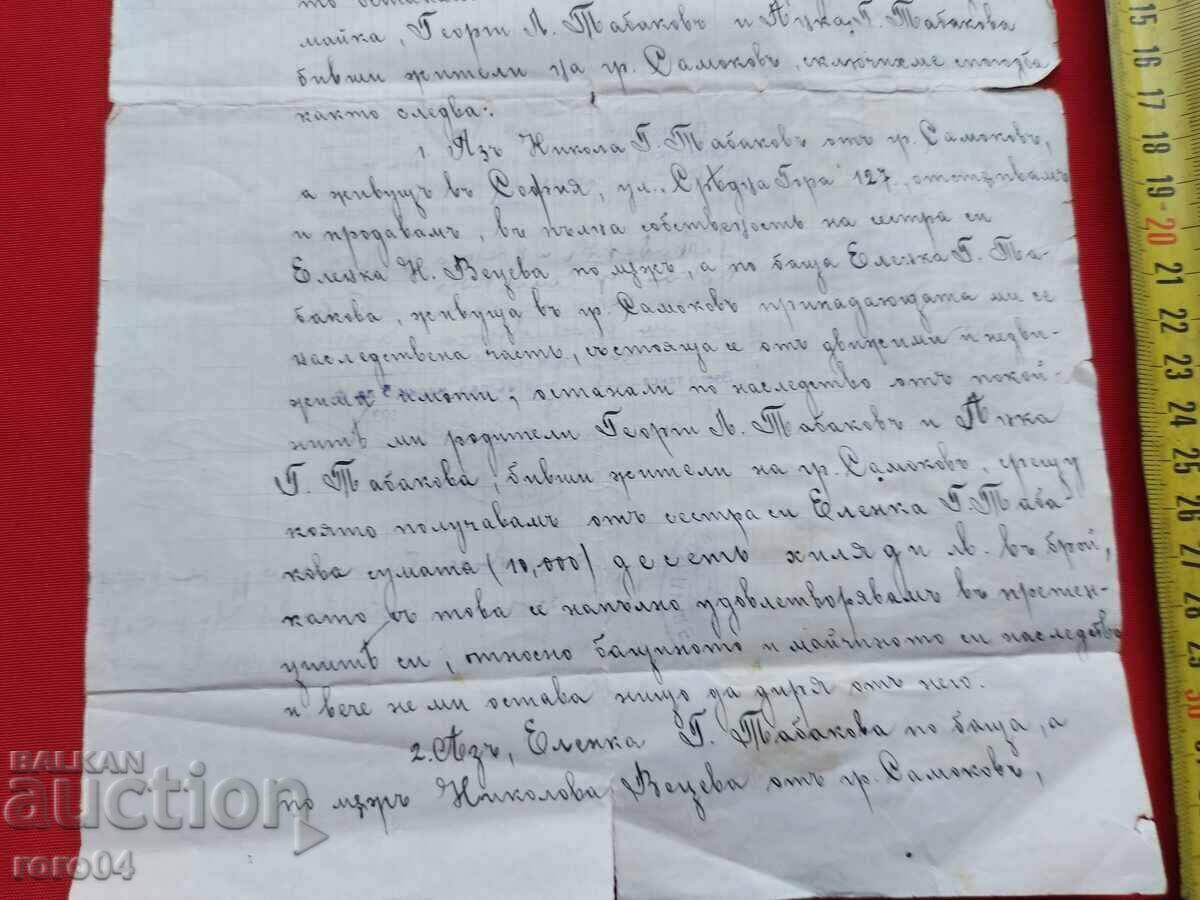 майка, Георги Л. Табаковъ и Анка Г. Табакова
бивши жители на гр. Самоковъ, сключихме спогодба
както следва:
1. Азъ Никола Г. Табаковъ отъ гр. Самоковъ,
а живущъ въ София, ул. „Срѣдна Гора" 127, отстѫпвамъ
и продавамъ, въ пълна собственость на сестра си
Еленка Н. Вецева по мѫжъ, а по баща Еленка Г. Та-
бакова, живуща въ гр. Самоковъ припадающата ми се
наследствена часть, състояща се отъ движими и недви-
жими имоти, останали по наследство отъ покой-
нитѣ ми родители Георги Л. Табаковъ и Анка
Г. Табакова, бивши жители на гр. Самоковъ, срещу
която получавамъ отъ сестра си Еленка Г. Таба
кова сумата (10,000) десеть хиляди лв. въ брой,
като въ това се напълно удовлетворявамъ въ претен-
циитѣ си, относно бащиното и майчиното си наследство
и вече не ми остава нищо да диря отъ него.
2. Азъ, Еленка Г. Табакова по баща, а
по мѫжъ Николова Вецева отъ гр. Самоковъ,
BALKAN
auction
roro04
15 16 17 18 19 20 21 22 23 24 25 26 27 28 29 30